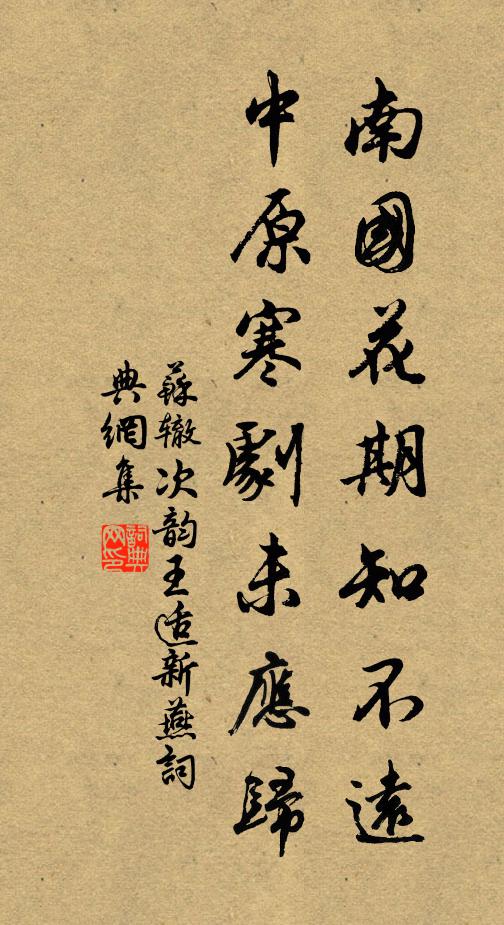 南國花期知不遠
中原寒劇未應歸
蘇辙次韵王适新燕詞
典網集
詞典網印